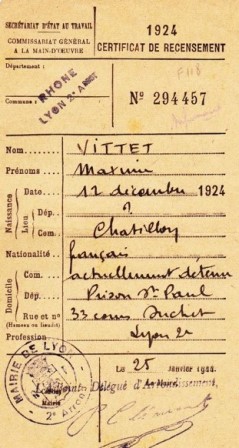 SECRÉTARIAT D'ÉTAT AU TRAVAIL
COMMISSARIAT GÉNÉRAL
A LA MAIN-D'ŒUVRE
1924
CERTIFICAT DE RECENSEMENT
Département :
RHONE
Commune :
LYON 2e ARRt
F118
No 294457
Nom VITTET
Prénoms Maxime
Naissance
Date 12 décembre 1924
Lieu
Dép. ?
Com. Chatillon
Nationalité français
Domicile
Dép. actuellement détenu
Com. Prison St Paul
Rue et no 33 cours Suchet
(Hameau ou lieudit)
Profession Lyon 2e
MAIRIE DE LYON
2e ARRDt
Le 25 Janvier 1944
L'Adjoint Délégué d'Arrondissement,
Le Maire